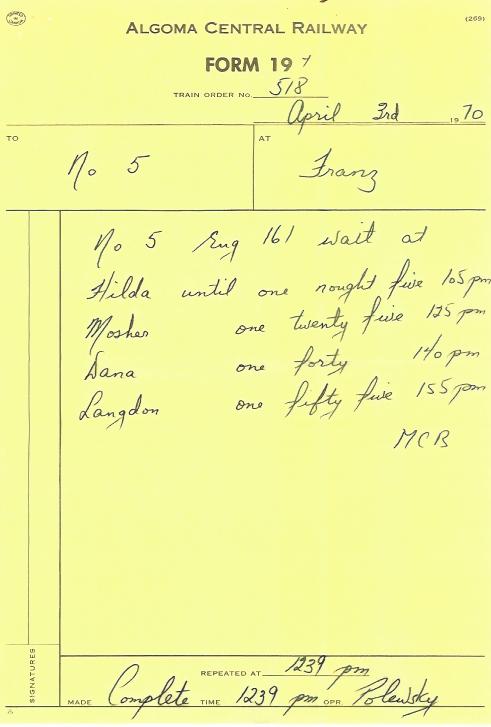 (269)
ALGOMA CENTRAL RAILWAY
FORM 19 Y
TRAIN ORDER No. 518
April 3rd 1970
TO No 5 AT Franz
No 5 Eng 161 wait at
Hilda until one nought five 105 pm
Mosher one twenty five 125 pm
Dana one forty 140 pm
Langdon one fifty five 155 pm
MCB
SIGNATURES
REPEATED AT 1239 pm
MADE Complete TIME 1239 pm OPR. Polewsky